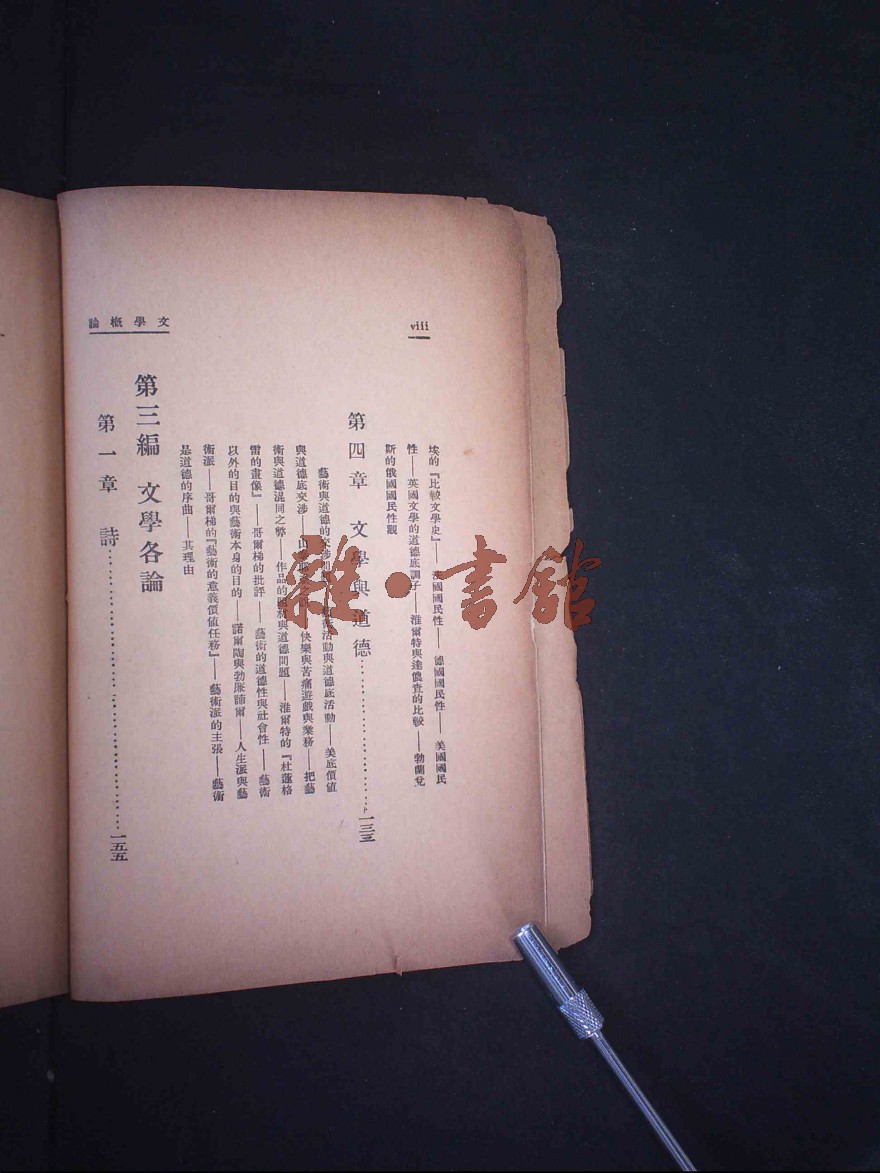 文學概論
viii
埃的『比較文學史』——法國國民性——德國國民性——美國國民
性——英國文學的道德底調子——淮爾特與達儂查的比較——勃蘭兌
斯的俄國國民性觀
第四章 文學與道德……………………一三三
藝術與道德的交涉問 活動與道德底活動——美底價值
與道德底交涉——山 快樂與苦痛遊戲與業務——把藝
術與道德混同之弊——作品的題材與道德問題——淮爾特的『杜蓮格
雷的畫像』——哥爾梯的批評——藝術的道德性與社會性——藝術
以外的目的與藝術本身的目的——諾爾陶與勃廉諦爾——人生派與藝
術派——哥爾梯的『藝術的意義價值任務』——藝術派的主張——藝術
是道德的序曲——其理由
第三編 文學各論
第一章 詩……………………………一五五
雜·書館